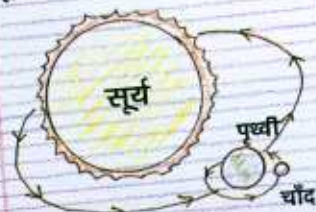 सूर्य
पृथ्वी
चाँद